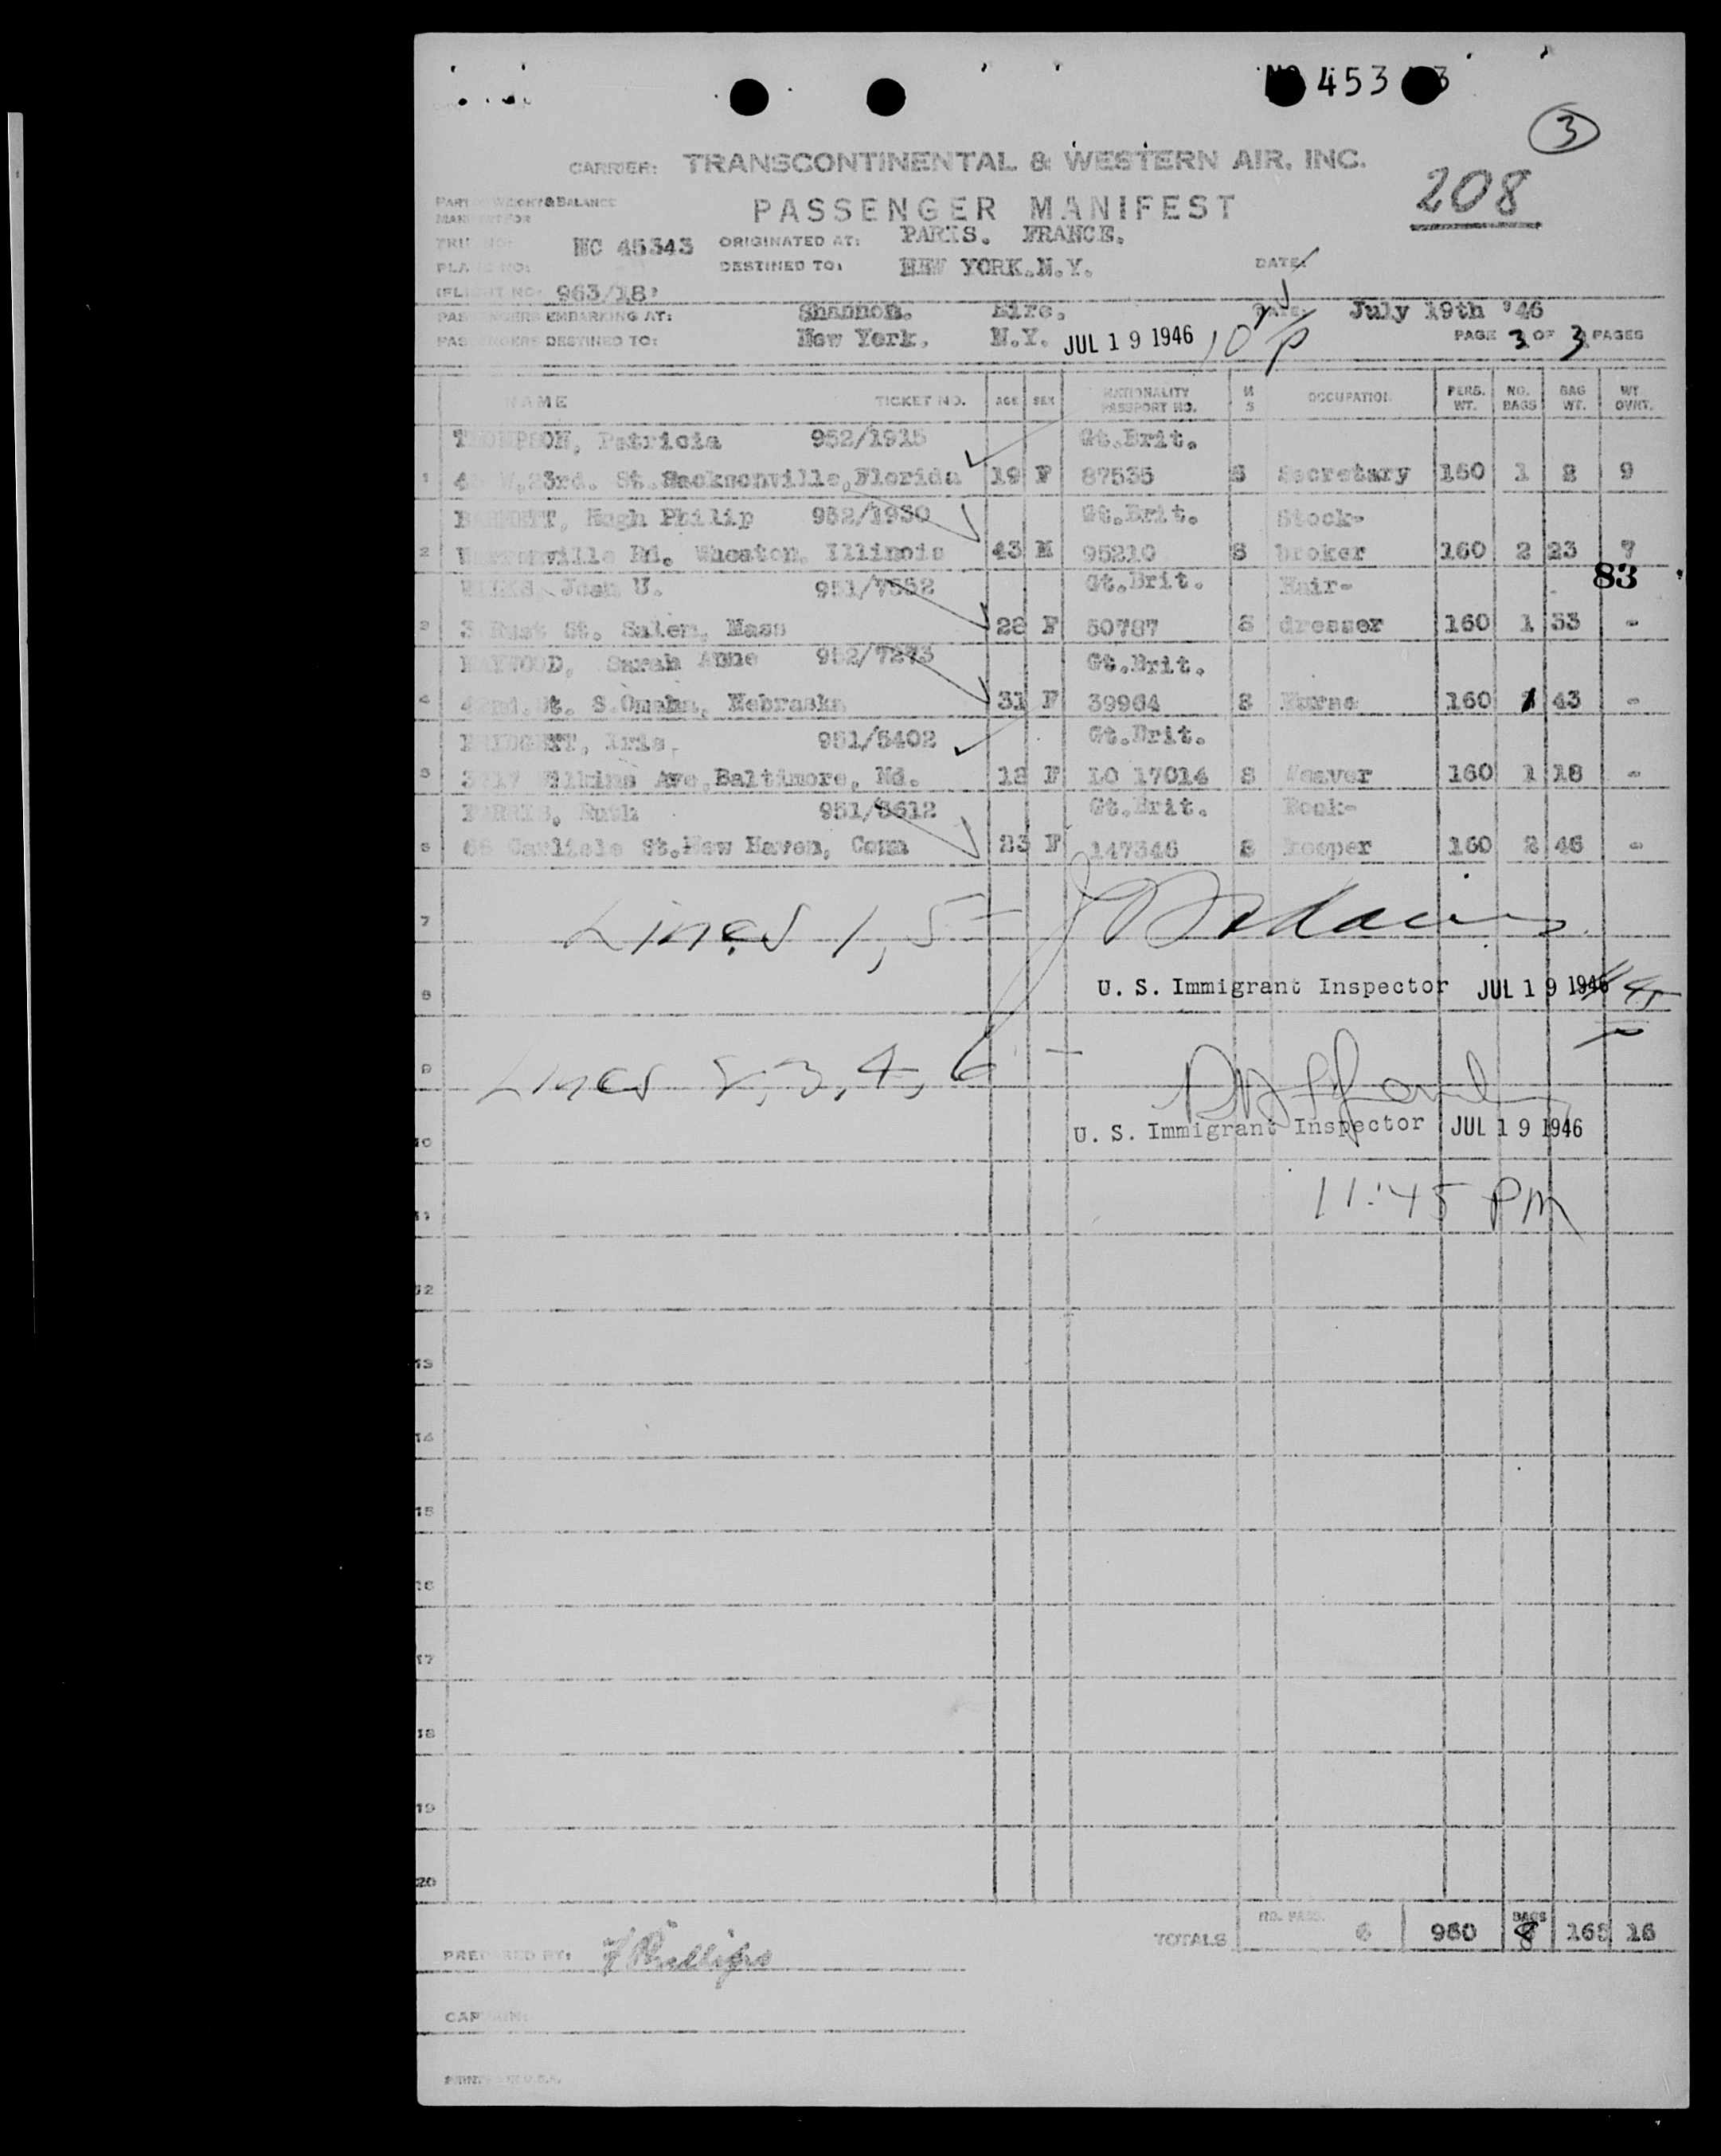 453
3
CARRIER: TRANSCONTINENTAL & WESTERN AIR, INC.
208
PASSENGER MANIFEST
NC 45343 ORIGINATED AT: PARIS. FRANCE.
DESTINED TO: NEW YORK.N.Y. DATE:
963/18
EMBARKING AT: Shannon. Eire. DATE: July 19th '46
DESTINED TO: New York. N.Y. JUL 19 1946 PAGE 3 OF 3 PAGES
NAME TICKET NO. AGE SEX NATIONALITY PASSPORT NO. M S OCCUPATION PERS. WT. NO. BAGS BAG WT. WT. OVNT.
THOMPSON, Patricia 952/1915 Gt.Brit.
1 23rd. St. Florida 19 F 87535 S Secretary 150 1 9
Hugh Philip 952/1930 Gt.Brit. Stock-
2 Rd. Wheaton, Illinois 43 M 95210 S broker 160 2 23 7
Joan U. Gt.Brit. Hair-
83
3 St. Salem, Mass 28 F 50787 S dresser 160 1 33 -
HAYWOOD, Sarah Anne 952/7273 Gt.Brit.
4 42nd. St. S.Omaha, Nebraska 31 F 39964 S Nurse 160 43 -
Iris 951/5402 Gt.Brit.
5 Wilkins Ave, Baltimore, Md. F LO 17014 S Weaver 160 1 18 -
Ruth 951/3612 Gt.Brit. Book-
6 Carlisle St.New Haven, Conn 23 F 147346 S keeper 160 2 -
7 Lines 1, 5 -
8 U. S. Immigrant Inspector JUL 19 1946
9 Lines 2, 3, 4, 6 -
10 U. S. Immigrant Inspector JUL 19 1946
11 11:45 PM
12
13
14
15
16
17
18
19
20
TOTALS NO. PASS. 6 BAGS 8 16
PREPARED BY: Phillips
CAPTAIN:
PRINTED IN U.S.A.